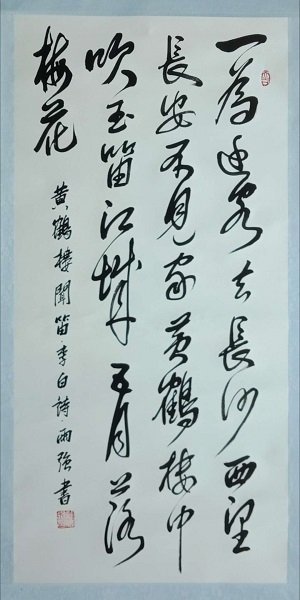 一為遷客去長沙西望
長安不見家黃鶴樓中
吹玉笛江城五月落
梅花
黃鶴樓聞笛李白詩雨強書